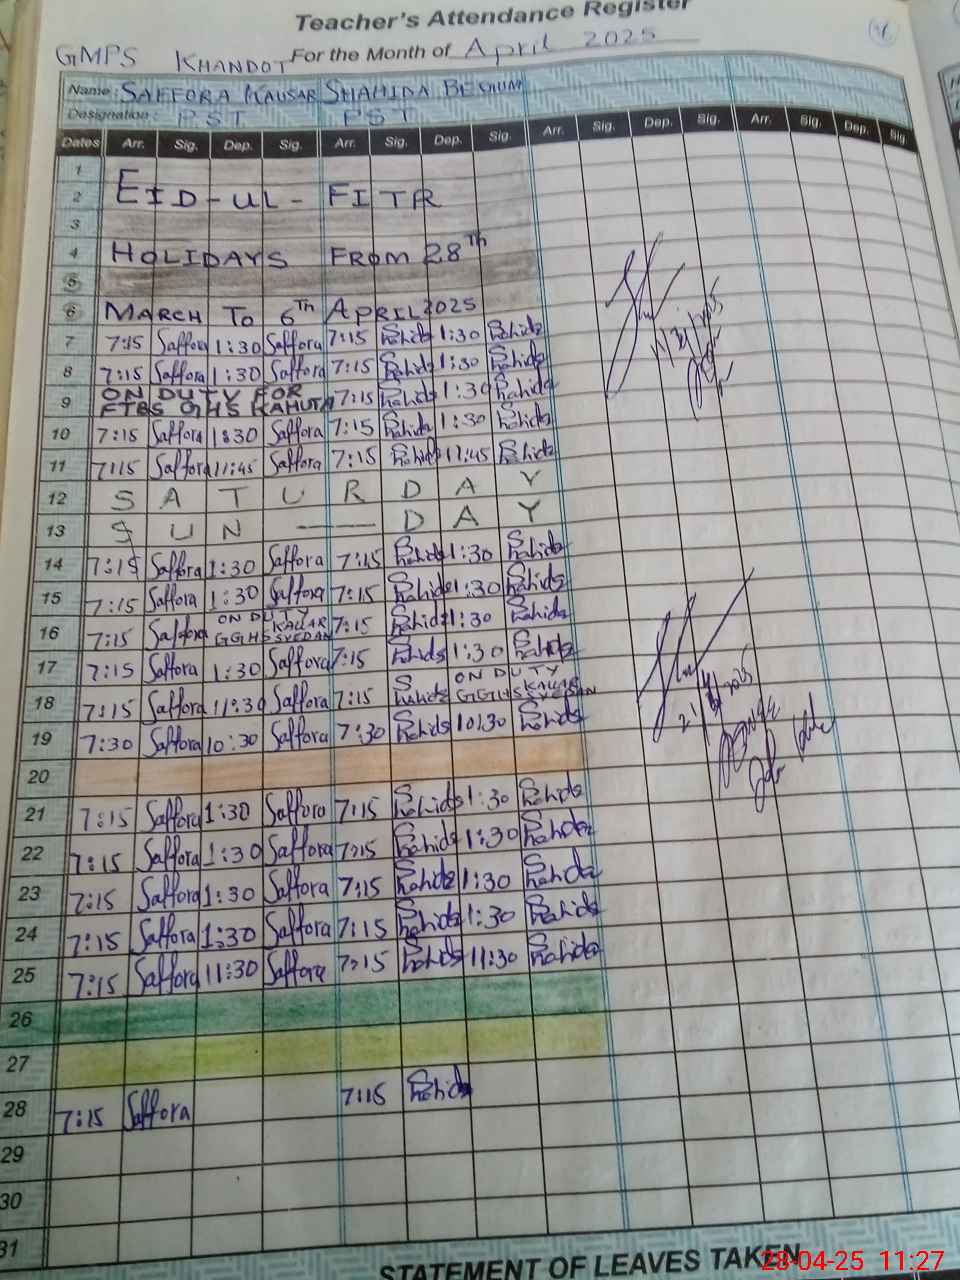 Teacher's Attendance Register
GMPS KHANDOT For the Month of April 2025
Name: SAFFORA KAUSAR SHAHIDA BEGHUM
Designation: P.S.T PST
Dates Arr. Sig. Dep. Sig. Arr. Sig. Dep. Sig. Arr. Sig. Dep. Sig. Arr. Sig. Dep. Sig
1
2 EID-UL-FITR
3
4 HOLIDAYS FROM 28Th
5
6 MARCH TO 6Th APRIL 2025
7 7:15 Saffora 1:30 Saffora 7:15 Shahida 1:30 Shahida
8 7:15 Saffora 1:30 Saffora 7:15 Shahida 1:30 Shahida
9 ON DUTY FOR FTBS GHS KAHUTA 7:15 Shahida 1:30 Shahida
10 7:15 Saffora 1:30 Saffora 7:15 Shahida 1:30 Shahida
11 7:15 Saffora 11:45 Saffora 7:15 Shahida 11:45 Shahida
12 SATURDAY
13 SUN — DAY
14 7:15 Saffora 1:30 Saffora 7:15 Shahida 1:30 Shahida
15 7:15 Saffora 1:30 Saffora 7:15 Shahida 1:30 Shahida
16 7:15 Saffora ON DUTY GGHS KALLAR SYEDAN 7:15 Shahida 1:30 Shahida
17 7:15 Saffora 1:30 Saffora 7:15 Shahida 1:30 Shahida
18 7:15 Saffora 11:30 Saffora 7:15 Shahida ON DUTY GGHS KALLAR SYEDAN
19 7:30 Saffora 10:30 Saffora 7:30 Shahida 10:30 Shahida
20
21 7:15 Saffora 1:30 Saffora 7:15 Shahida 1:30 Shahida
22 7:15 Saffora 1:30 Saffora 7:15 Shahida 1:30 Shahida
23 7:15 Saffora 1:30 Saffora 7:15 Shahida 1:30 Shahida
24 7:15 Saffora 1:30 Saffora 7:15 Shahida 1:30 Shahida
25 7:15 Saffora 11:30 Saffora 7:15 Shahida 11:30 Shahida
26
27
28 7:15 Saffora 7:15 Shahida
29
30
31
STATEMENT OF LEAVES TAKEN
28-04-25 11:27